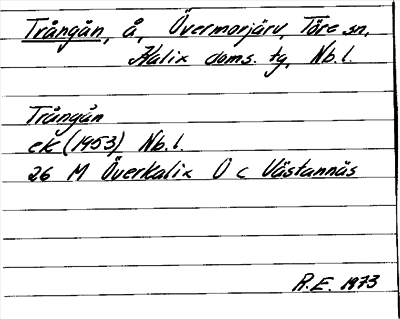 Trångån, å, Övermorjärv, Töre sn,
Kalix doms. tg, Nb.l.
Trångån
ek (1953) Nb.l.
26 M Överkalix O c Västannäs
R.E. 1973